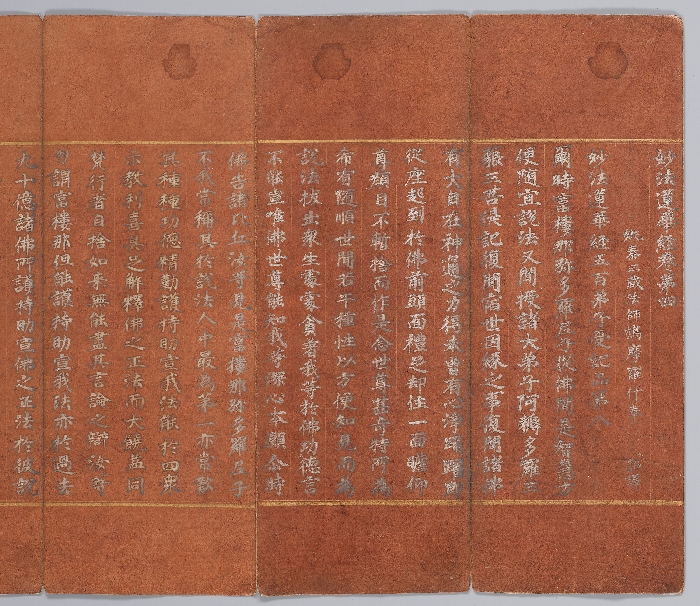 妙法蓮華經卷第四
姚秦三藏法師鳩摩羅什奉 詔譯
妙法蓮華經五百弟子受記品第八
爾時富樓那彌多羅尼子從佛聞是智慧方
便隨宜說法又聞授諸大弟子阿耨多羅三
藐三菩提記復聞宿世因緣之事復聞諸佛
有大自在神通之力得未曾有心淨踊躍即
從座起到於佛前頭面禮足却住一面瞻仰
尊顏目不暫捨而作是念世尊甚奇特所為
希有隨順世間若干種性以方便知見而為
說法拔出衆生處處貪著我等於佛功德言
不能宣唯佛世尊能知我等深心本願尒時
佛告諸比丘汝等見是富樓那弥多羅尼子
不我常稱其於說法人中最為第一亦常歎
其種種功德精勤護持助宣我法能於四衆
示教利喜具足解釋佛之正法而大饒益同
梵行者自捨如來無能盡其言論之辯汝等
勿謂富樓那但能護持助宣我法亦於過去
九十億諸佛所護持助宣佛之正法於彼說